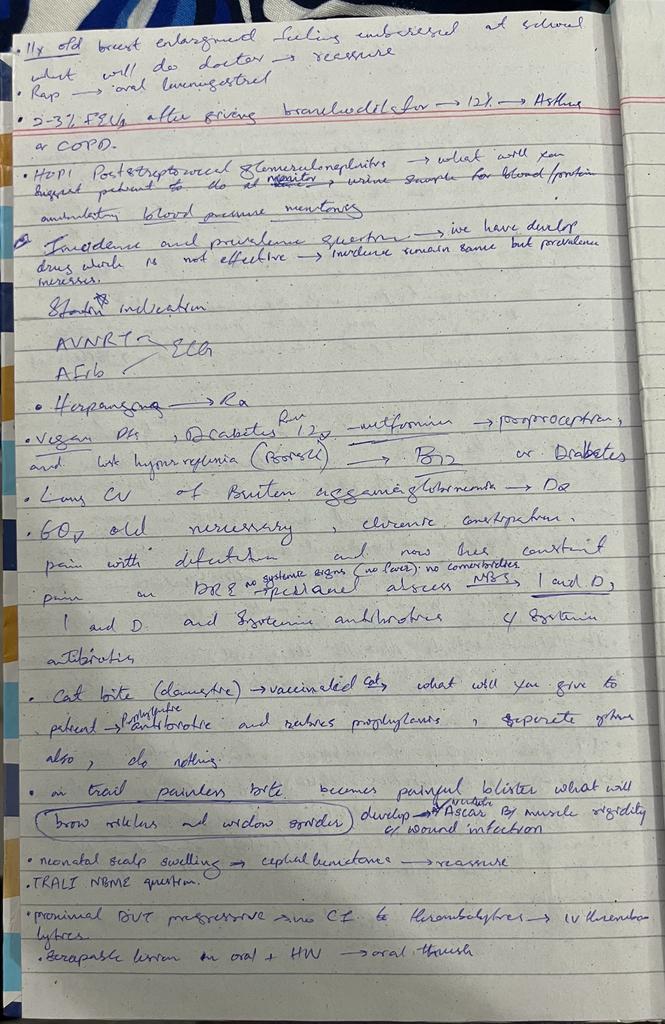 • 11y old breast enlargment feeling embaresed at school
what will do doctor → reassure
• Rap → oral levonogestrel
• 2-3% FEV1 after giving bronchodilator → 12% → Asthma
or COPD.
• HOPI Poststreptococcal glomerulonephritis → what will you
suggest patient to do at monitor, urine sample for blood/protein
ambulatory blood pressure monitoring
Incidence and prevalence question → we have develop
drug which is not effective → incidence remain same but prevalence
increases.
Statin indication
AVNRT
ECG
AFib
• Herpangina → Rx
• vegan pt, Diabetes 12y metformin → proprioception,
and lost → B12 or Diabetes
• Long CV of Bruton aggamaglobinemia → Dx
• 60y old , chronic constipation,
pain with defecation and now has constant
pain on DRE no systemic signs (no fever). no comorbidities → perianal abscess NBS → I and D,
I and D and systemic antibiotics c/ systemic
antibiotics
• Cat bite (domestic) → vaccinated cat, what will you give to
patient → Prophylactic antibiotic and rabies prophylaxis, seperate option
also, do nothing.
• on trail painless bite becomes painful blister what will
brow reclus and widow spider develop → A) scar B) muscle rigidity
c) wound infection
• neonatal scalp swelling → cephalhematoma → reassure
• TRALI NBME question.
• proximal DVT progressive → no CI to thrombolytics → IV thrombo
lytics
• Scrapable lesion in oral + → oral thrush